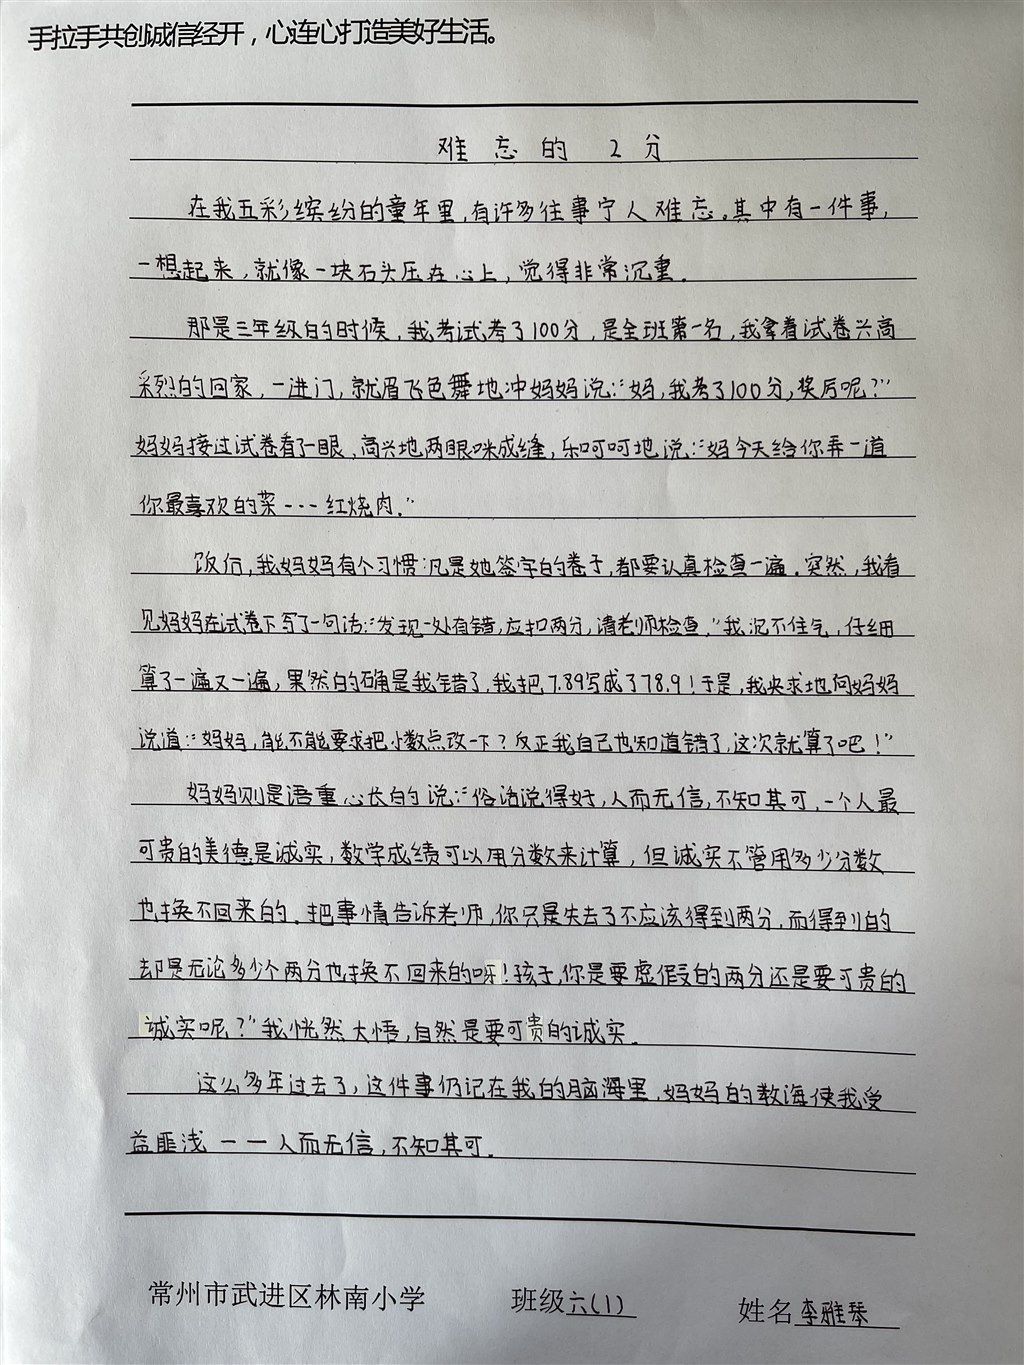 手拉手共创诚信经开，心连心打造美好生活。
难忘的 2分
在我五彩缤纷的童年里,有许多往事宁人难忘.其中有一件事,
一想起来,就像一块石头压在心上,觉得非常沉重.
那是三年级的时候,我考试考了100分,是全班第一名,我拿着试卷兴高
采烈的回家,一进门,就眉飞色舞地冲妈妈说:“妈,我考了100分,奖励呢?”
妈妈接过试卷看了一眼,高兴地两眼咪成缝,乐呵呵地说:“妈今天给你弄一道
你最喜欢的菜---红烧肉.”
饭后,我妈妈有个习惯:凡是她签字的卷子,都要认真检查一遍.突然,我看
见妈妈在试卷下写了一句话:“发现一处有错,应扣两分,请老师检查.”我沉不住气,仔细
算了一遍又一遍,果然的确是我错了,我把7.89写成了78.9!于是,我央求地向妈妈
说道:“妈妈,能不能要求把小数点改一下?反正我自己也知道错了,这次就算了吧!”
妈妈则是语重心长的说:“俗话说得好,人而无信,不知其可,一个人最
可贵的美德是诚实,数学成绩可以用分数来计算,但诚实不管用多少分数
也换不回来的.把事情告诉老师,你只是失去了不应该得到两分,而得到的
却是无论多少个两分也换不回来的呀!孩子,你是要虚假的两分还是要可贵的
诚实呢?”我恍然大悟,自然是要可贵的诚实.
这么多年过去了,这件事仍记在我的脑海里,妈妈的教诲使我受
益匪浅——人而无信,不知其可.
常州市武进区林南小学 班级六(1) 姓名李雅琴